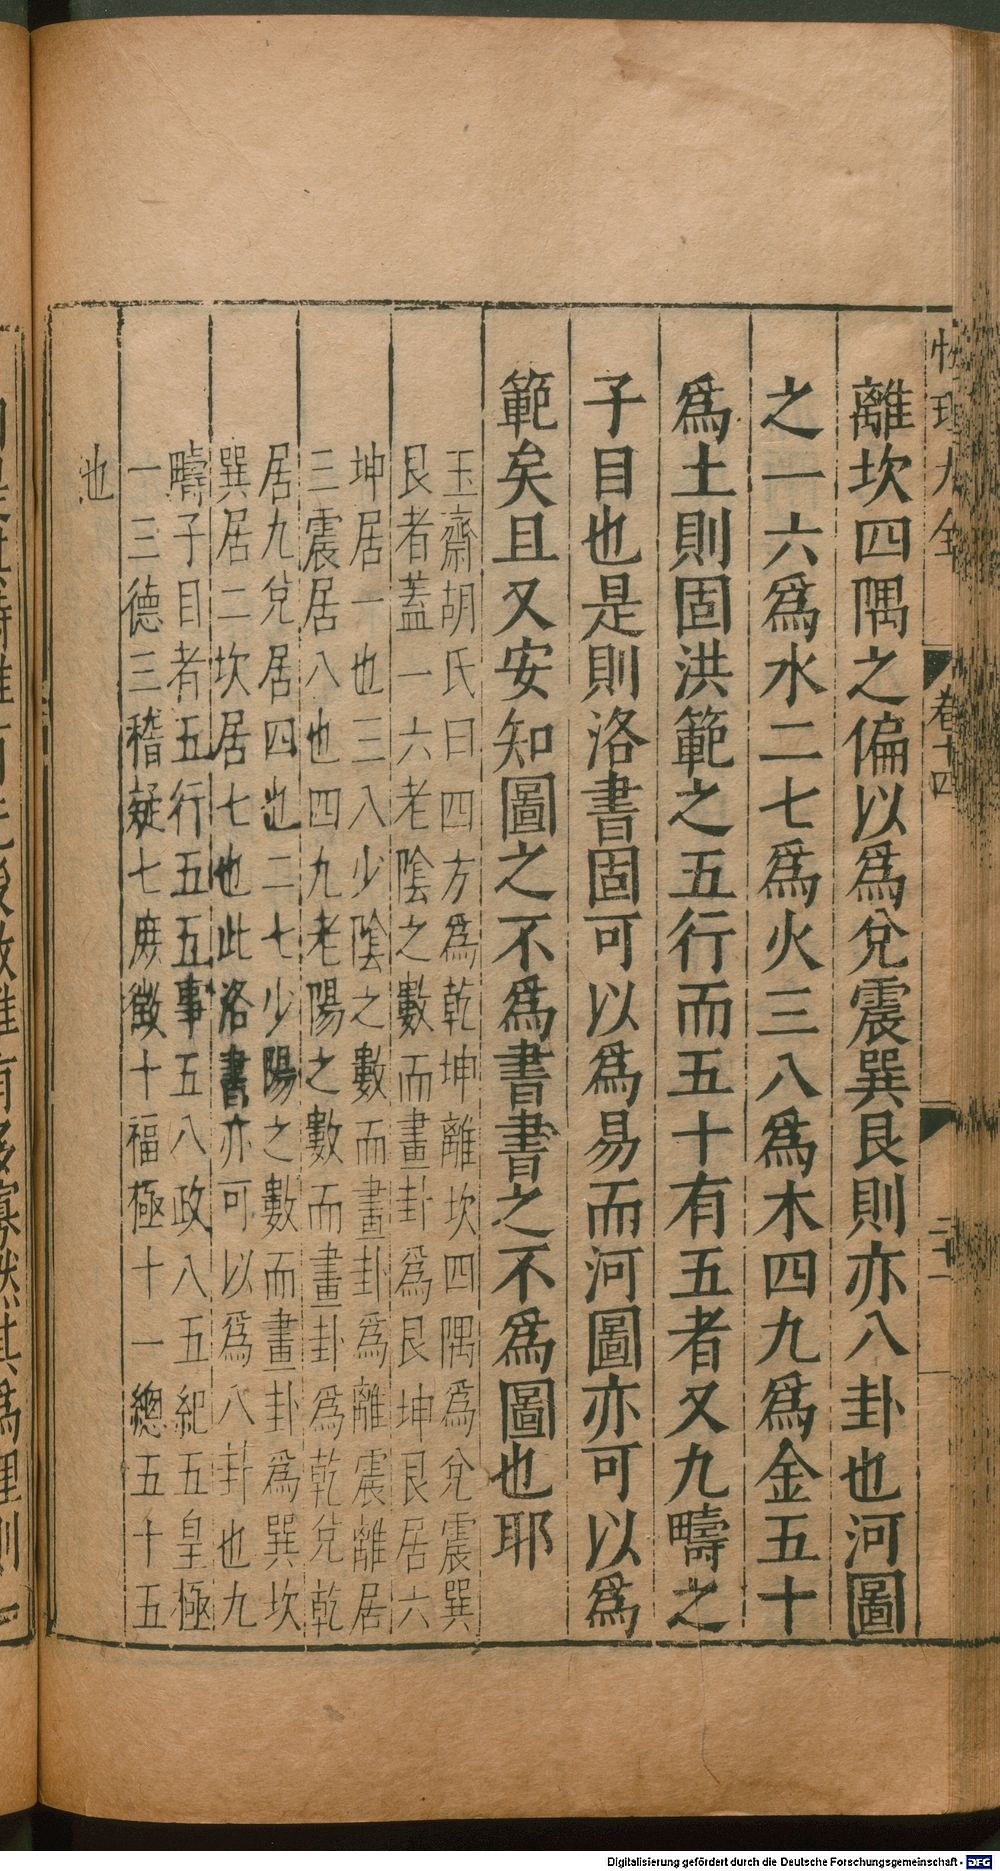 性理大全
卷十四
二十一
離坎四隅之偏以爲兌震巽艮則亦八卦也河圖
之一六爲水二七爲火三八爲木四九爲金五十
爲土則固洪範之五行而五十有五者又九疇之
子目也是則洛書固可以爲易而河圖亦可以爲
範矣且又安知圖之不爲書書之不爲圖也耶
玉齋胡氏曰四方爲乾坤離坎四隅爲兌震巽
艮者蓋一六老陰之數而畫卦爲艮坤艮居六
坤居一也三八少陰之數而畫卦爲離震離居
三震居八也四九老陽之數而畫卦爲乾兌乾
居九兌居四也二七少陽之數而畫卦爲巽坎
巽居二坎居七也此洛書亦可以爲八卦也九
疇子目者五行五五事五八政八五紀五皇極
一三德三稽疑七庶徵十福極十一總五十五
也
Digitalisierung gefördert durch die Deutsche Forschungsgemeinschaft - DFG